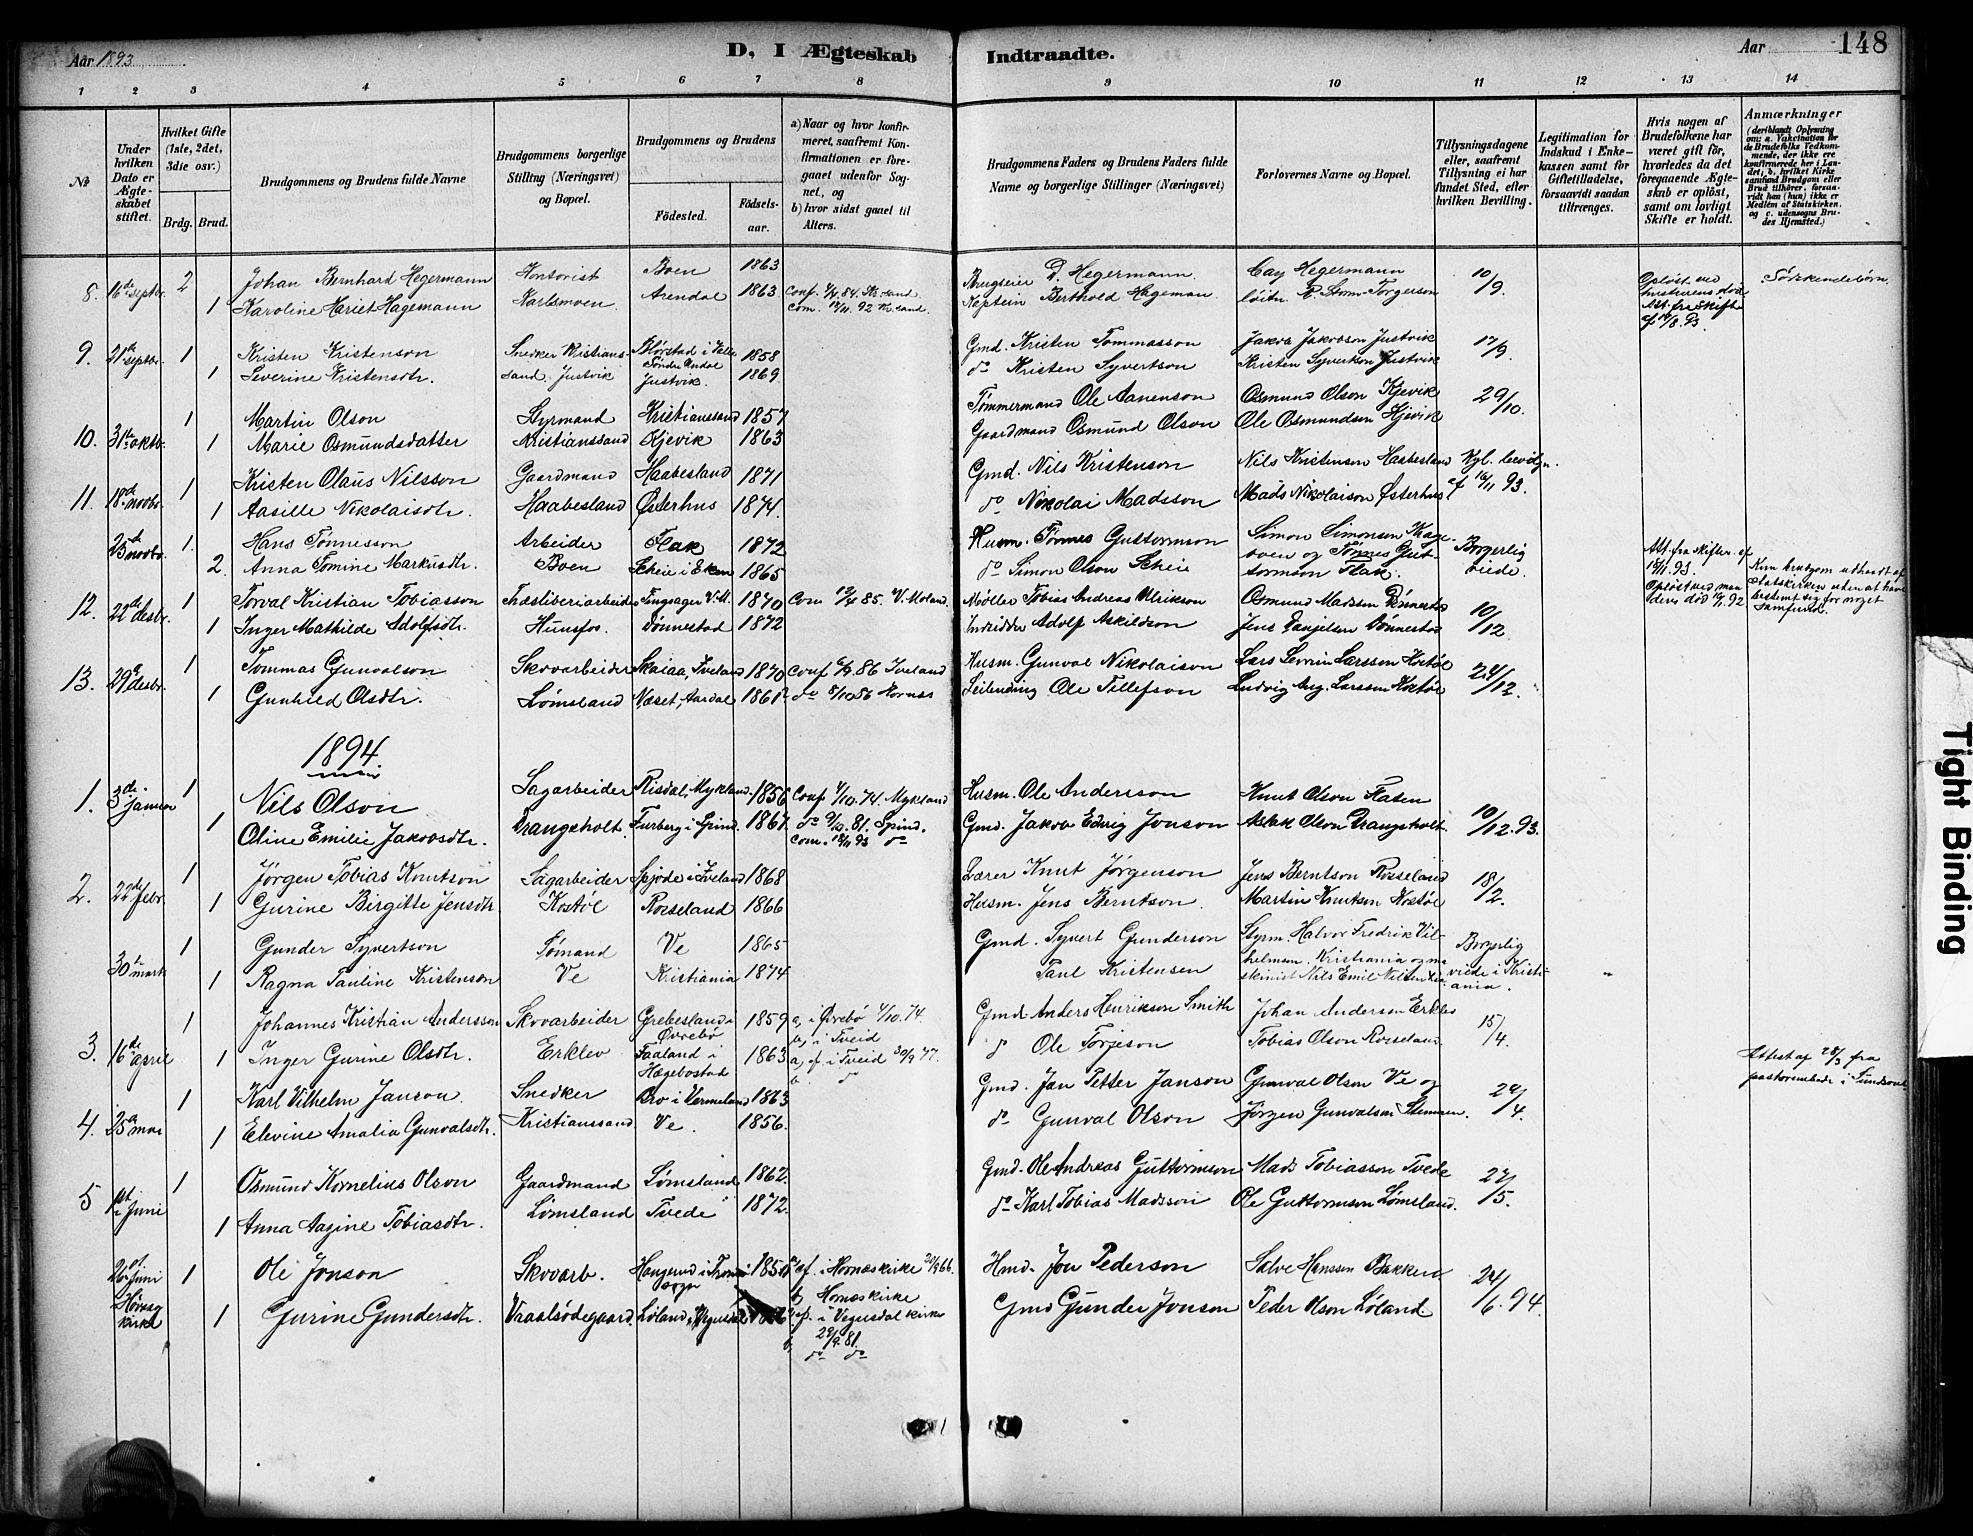 Aar 1893
D, I Ægteskab Indtraadte.
Aar 148
1 2 3 4 5 6 7 8 9 10 11 12 13 14
No
Under hvilken Dato er Ægteskabet stiftet.
Hvilket Gifte (1ste, 2det, 3die osv.)
Brdg. Brud.
Brudgommens og Brudens fulde Navne
Brudgommens borgerlige Stilling (Næringsvei) og Bopæl.
Brudgommens og Brudens
Fødested. Fødselsaar.
a) Naar og hvor konfirmeret, saafremt Konfirmationen er foregaaet udenfor Sognet, og
b) hvor sidst gaaet til Alters.
Brudgommens Faders og Brudens Faders fulde Navne og borgerlige Stillinger (Næringsvei)
Forlovernes Navne og Bopæl.
Tillysningsdagene eller, saafremt Tillysning ei har fundet Sted, efter hvilken Bevilling.
Legitimation for Indskud i Enkekassen samt for Giftetilladelse, forsaavidt saadan tiltrænges.
Hvis nogen af Brudefolkene har været gift før, hvorledes da det foregaaende Ægteskab er opløst, samt om lovligt Skifte er holdt.
Anmærkninger (deriblandt Oplysning om: a. Vakcination for de Brudefolks Vedkommende, der ikke ere konfirmerede her i Landet; b. hvilket Kirkesamfund Brudgom eller Brud tilhører, forsaavidt han (hun) ikke er Medlem af Statskirken, og c. udensogns Brudes Hjemsted.)
8. 16de septbr. 2 Johan Bernhard Hegermann Kontorist Boen 1863 Brugseier D. Hegermann Cay Hegermann 10/9 Søskendebørn.
1 Karoline Hariet Hagemann Karlsmoen Arendal 1863 Conf. 84. Kr.sand Com. 92 Kr.sand. Berthold Hageman
9. 21de septbr. 1 Kristen Kristenson Snedker Kristians- 1858 Gmd. Kristen Tommasson Jakob Jakobson Justvik 17/9.
1 Severine Kristensdtr. sand. Justvik Justvik. 1869 do Kristen Syvertson Kristen Syvertson Justvik
10. 31te oktbr. 1 Martin Olson Styrmand Kristianssand 1857 Tømmermand Ole Aanenson Osmund Olson Kjevik 29/10.
1 Marie Osmundsdatter Kristianssand Kjevik 1863 Gaardmand Osmund Olson Ole Osmundsen Kjevik
11. 18de novbr. 1 Kristen Olaus Nilsson Gaardmand Haabesland 1871 Gmd. Nils Kristenson Nils Kristenson Haabesland Kgl. bevilgn.
1 Aasille Nikolaisdtr. Haabesland Østerhus 1874. do Nikolai Madsson Mads Nikolaison Østerhus af 16/11 93.
25de novbr. 1. Hans Tønnesson Arbeider Flak 1872 Husm. Tønnes Guttormson Simon Simonsen Borgerlig viede.
2. Anna Tomine Markusdtr. Boen Scheie i Eken 1865 do Simon Olson Scheie og Tønnes Guttormson Flak.
12. 22de desbr. 1 Torval Kristian Tobiasson Træsliberiarbeider Tingsager V.M. 1870 Com 85. V. Moland. Møller Tobias Andreas Ulrikson Osmund Madssen Dønnestad 10/12
1 Inger Mathilde Adolfsdtr. Hunsfos. Dønnestad 1872 Indridder Adolf Askildson Jens Danjelsen Dønnestad
13. 29de desbr. 1 Tommas Gunvalson Skovarbeider Skaiaa, Iveland 1870 Conf 86 Iveland Husm. Gunval Nikolaison Lars Severin Larssen Kostøl 24/12.
1 Gunhild Olsdtr. Lømsland Næset, Aardal 1861 do 8/10 86 Hornnes Leilending Ole Tellefson Ludvig Aug. Larssen Kostøl
1894.
1. 3die januar 1 Nils Olson Sagarbeider Risdal, Mykland. 1856 Conf 4/10.74. Mykland Husm. Ole Anderson Knut Olson Flaten 10/12.93.
1 Oline Emilie Jakobsdtr. Drangsholt. Furberg i Spind. 1867. do 81. Spind. Com. 93 do Gmd. Jakob Edvig Jonson Aslak Olson Drangsholt.
2. 22de febr. 1 Jørgen Tobias Knutson Sagarbeider Skjøde i Iveland 1868 Lærer Knut Jørgenson Jens Berntson Rosseland 18/2.
1 Gurine Birgitte Jensdtr. Kostøl Rosseland 1866 Husm. Jens Berntson Martin Knutsen Kostøl
30te marts 1 Gunder Syvertson Sømand Ve 1865 Gmd. Syvert Gunderson Styrm. Halvor Fredrik Vilhelmsen. Kristiania og maskinist Nils Emil Nilsen Borgerlig viede i Kristiania.
1 Ragna Pauline Kristenson Ve Kristiania 1874 Paul Kristensen
3. 16de april 1 Johannes Kristian Andersson Skovarbeider Grebesland i Øvrebø 1859 a, i Øvrebø 4/10.74. b, i Tveid Gmd. Anders Henrikson Smith Johan Andersen Erklev 15/4.
1 Inger Gurine Olsdtr. Erklev Faaland i Hægebostad 1863 a, cf. i Tveid 30/9 77. b. do do Ole Torjeson Tobias Olson Rosseland
Attest af 28/3 fra pastorembede i Sundsvall
4. 25de mai 1 Karl Vilhelm Janson Snedker Bro i Vermeland 1863 Gmd. Jan Petter Janson Gunval Olson Ve og 29/4.
1 Elevine Amalia Gunvalsdtr. Kristianssand Ve. 1856. do Gunval Olson Jørgen Gunvalson Stemmen.
5 1ste Juni 1 Osmund Kornelius Olson Gaardmand Lømsland 1862. Gmd. Ole Andreas Guttormson Mads Tobiasson Tvede 27/5.
1 Anna Aagine Tobiasdtr. Lømsland Tvede 1872. do Karl Tobias Madsson Ole Guttormson Lømsland.
26de Juni Høvåg kirke 1 Ole Jonson Skovarb. 1850 a, cf. i Hornæs kirke 66. b, Hornæs kirke Hmd. Jon Pederson Salve Hanssen Bakken 24/6. 94.
1 Gurine Gundersdtr. Vraalsødegaard. Løland, Vegusdal cf. i Vegusdal kirke 29/9.81. do do Gmd Gunder Jonson Peder Olson Løland
Tight Binding